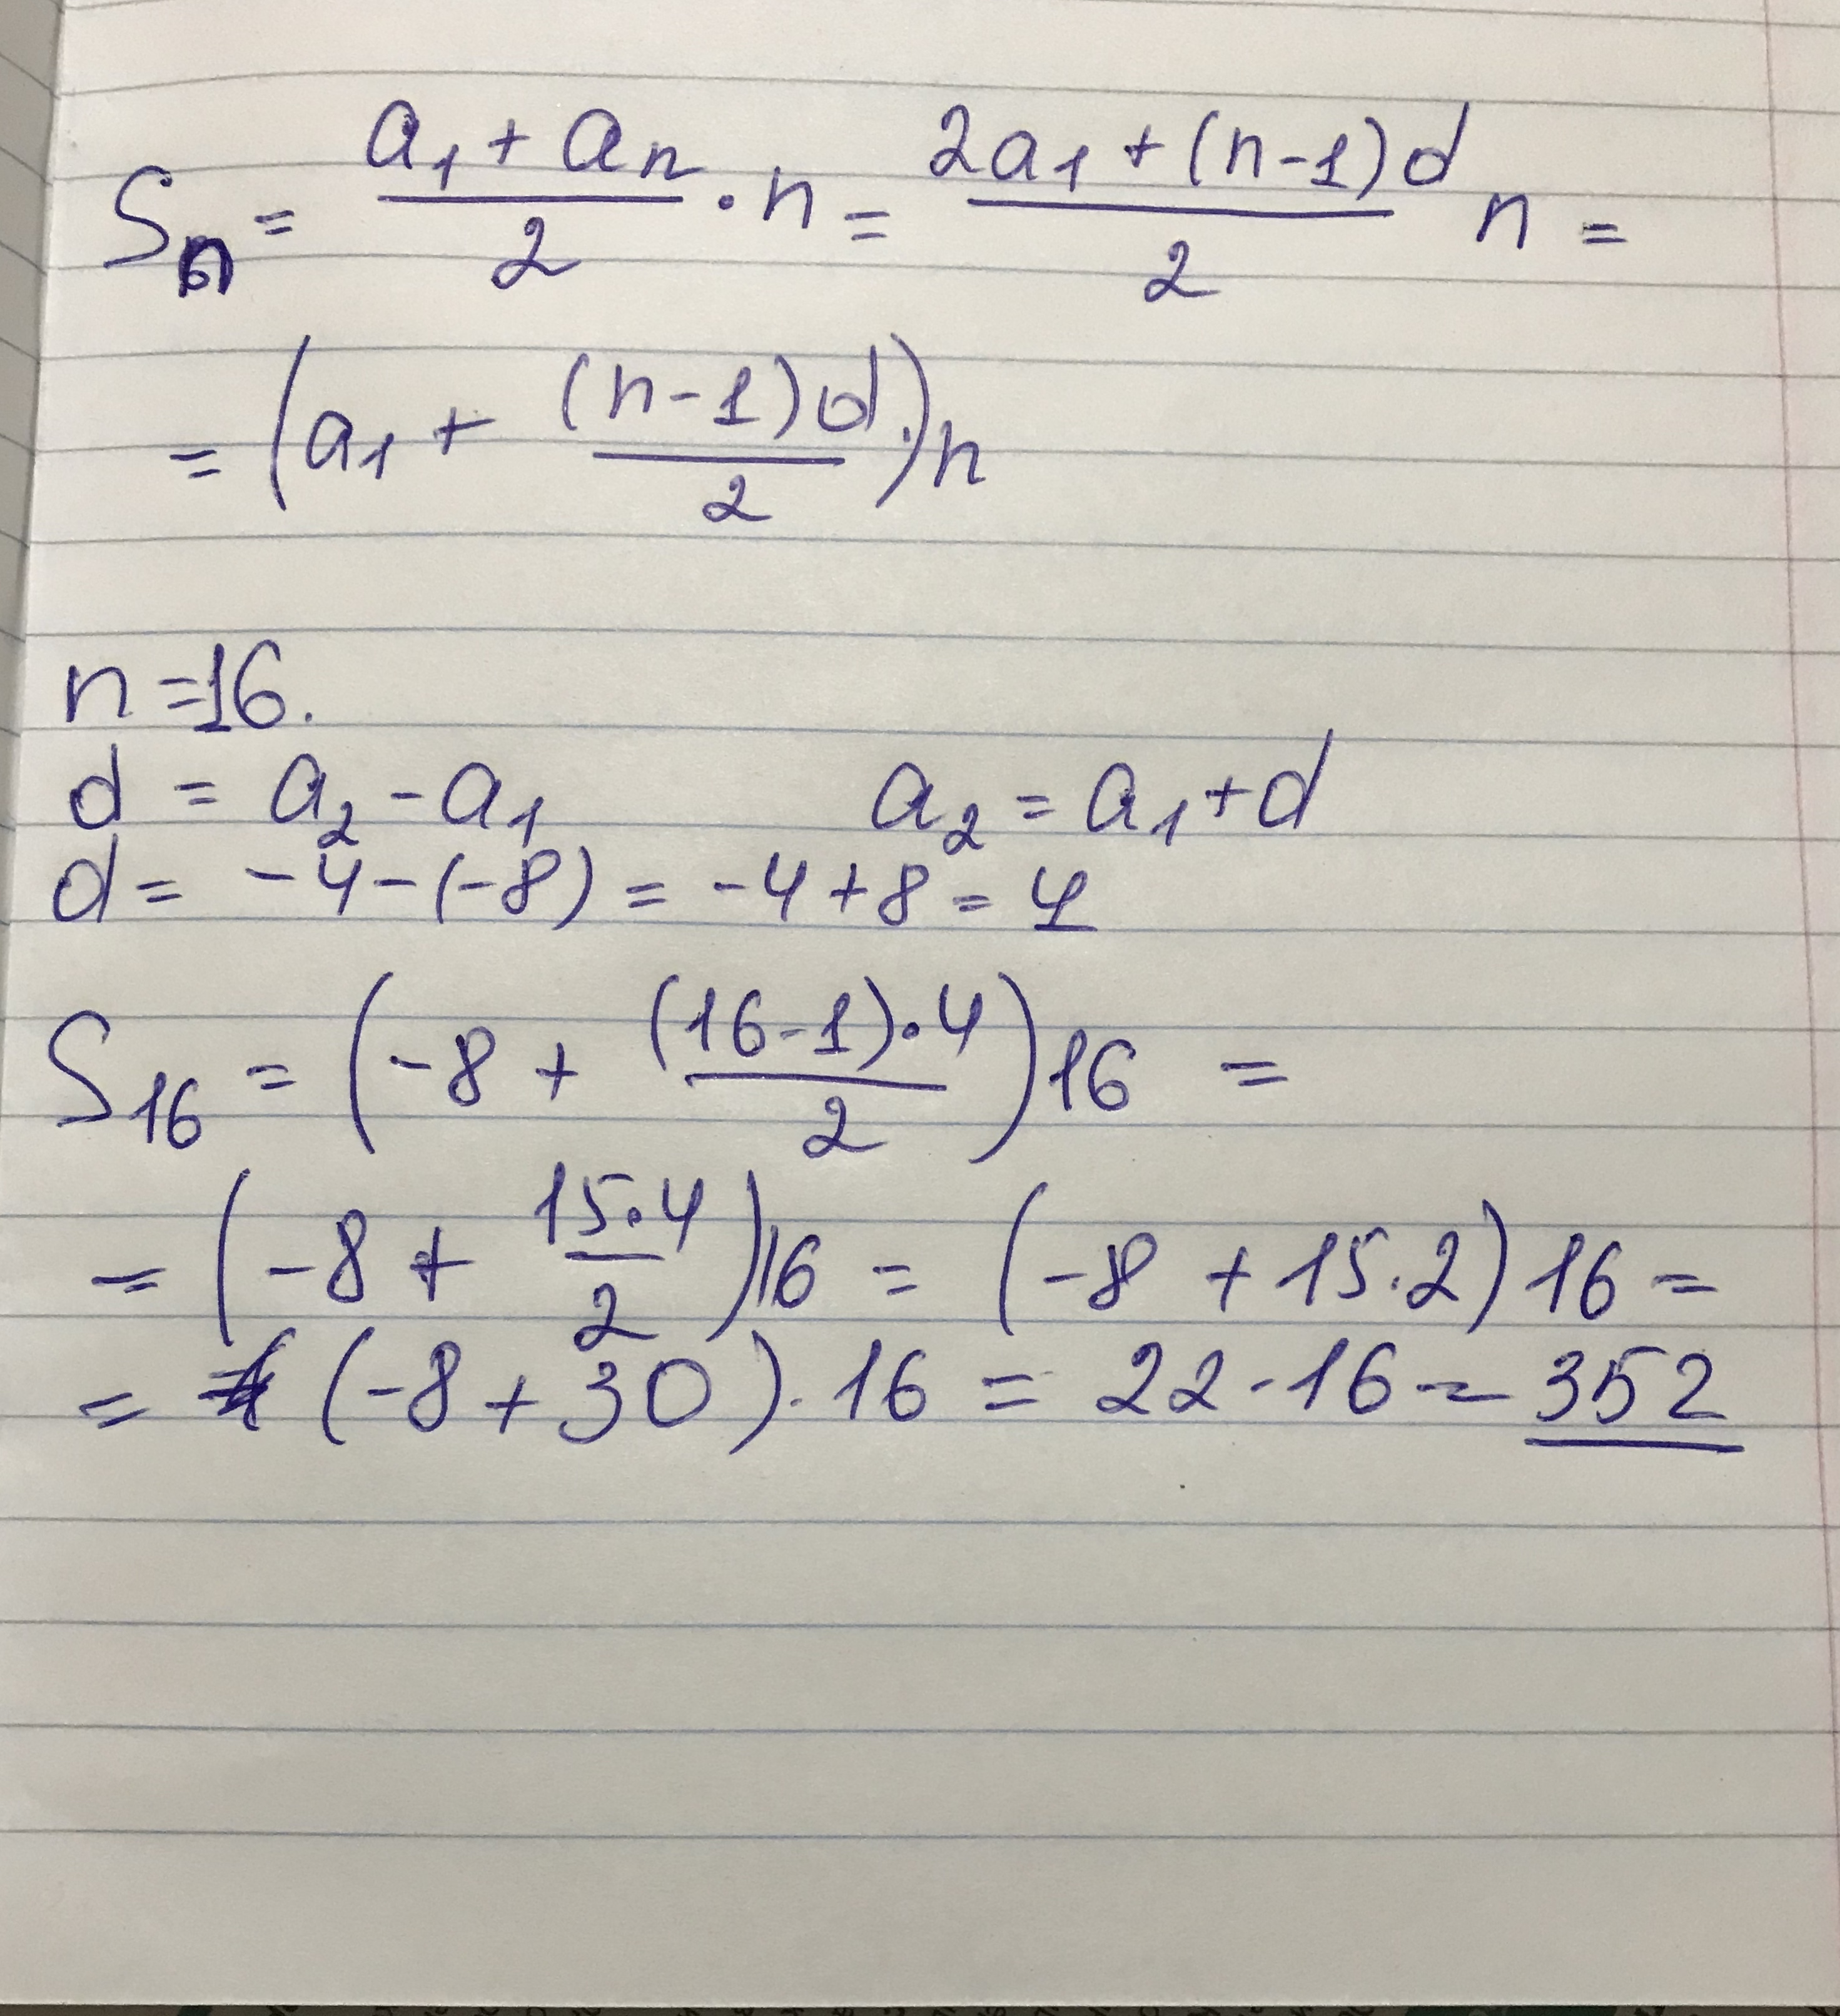 Sₙ = (a₁ + aₙ)/2 · n = (2a₁ + (n-1)d)/2 n =
= (a₁ + (n-1)d/2) n
n = 16.
d = a₂ - a₁    a₂ = a₁ + d
d = -4 - (-8) = -4 + 8 = 4
S₁₆ = (-8 + (16-1)·4/2) 16 =
= (-8 + 15·4/2) 16 = (-8 + 15·2) 16 =
= (-8 + 30) · 16 = 22 · 16 = 352